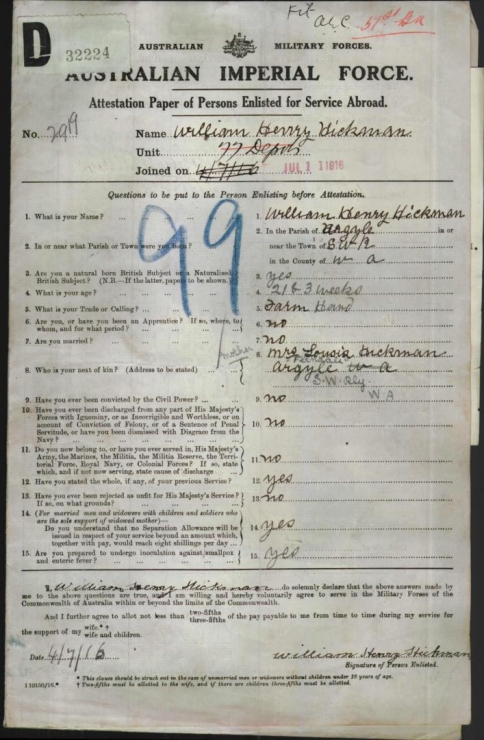 Fit
D
32224
AUSTRALIAN MILITARY FORCES.
AUSTRALIAN IMPERIAL FORCE.
Attestation Paper of Persons Enlisted for Service Abroad.
No. 2919 Name William Henry Hickman.
Unit 77 Depot
Joined on 4/7/16 JUL 1 1916
Questions to be put to the Person Enlisting before Attestation.
99
1. What is your Name? 1. William Henry Hickman
2. In or near what Parish or Town were you born? 2. In the Parish of Argyle in or
near the Town of S.W.R
in the County of W A
3. Are you a natural born British Subject or a Naturalised
British Subject? (N.B.—If the latter, papers to be shown.) 3. yes
4. What is your age? 4. 21 & 3 weeks
5. What is your Trade or Calling? 5. Farm Hand
6. Are you, or have you been an Apprentice? If so, where, to
whom, and for what period? 6. no
7. Are you married? 7. no
mother
8. Who is your next of kin? (Address to be stated) 8. Mrs Lousia Hickman
Argyle W A
S.W. Rly
W A
9. Have you ever been convicted by the Civil Power? 9. no
10. Have you ever been discharged from any part of His Majesty's
Forces with Ignominy, or as Incorrigible and Worthless, or on
account of Conviction of Felony, or of a Sentence of Penal
Servitude, or have you been dismissed with Disgrace from the
Navy? 10. no
11. Do you now belong to, or have you ever served in, His Majesty's
Army, the Marines, the Militia, the Militia Reserve, the Terri-
torial Force, Royal Navy, or Colonial Forces? If so, state
which, and if not now serving, state cause of discharge 11. no
12. Have you stated the whole, if any, of your previous Service? 12. yes
13. Have you ever been rejected as unfit for His Majesty's Service?
If so, on what grounds? 13. no
14. (For married men and widowers with children and soldiers who
are the sole support of widowed mother)—
Do you understand that no Separation Allowance will be
issued in respect of your service beyond an amount which,
together with pay, would reach eight shillings per day 14. yes
15. Are you prepared to undergo inoculation against smallpox
and enteric fever? 15. yes
I, William Henry Hickman do solemnly declare that the above answers made by
me to the above questions are true, and I am willing and hereby voluntarily agree to serve in the Military Forces of the
Commonwealth of Australia within or beyond the limits of the Commonwealth.
And I further agree to allot not less than two-fifths three-fifths of the pay payable to me from time to time during my service for
the support of my wife.* † wife and children.
Date 4/7/16 William Henry Hickman
Signature of Person Enlisted.
* This clause should be struck out in the case of unmarried men or widowers without children under 18 years of age.
† Two-fifths must be allotted to the wife, and if there are children three-fifths must be allotted.